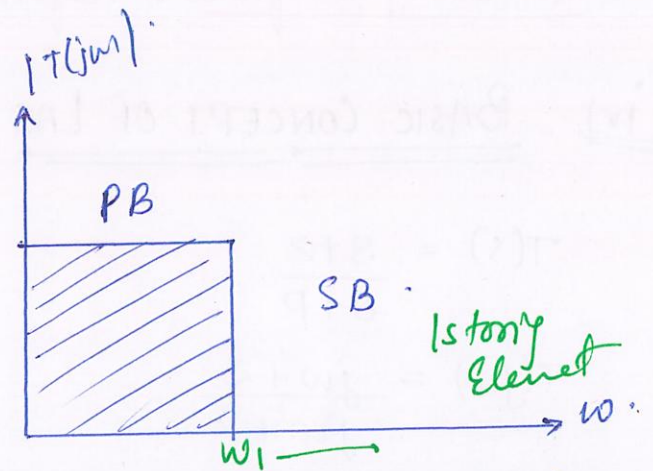 |T(jω)|
PB
SB .
1 storing
Element
ω .
ω1